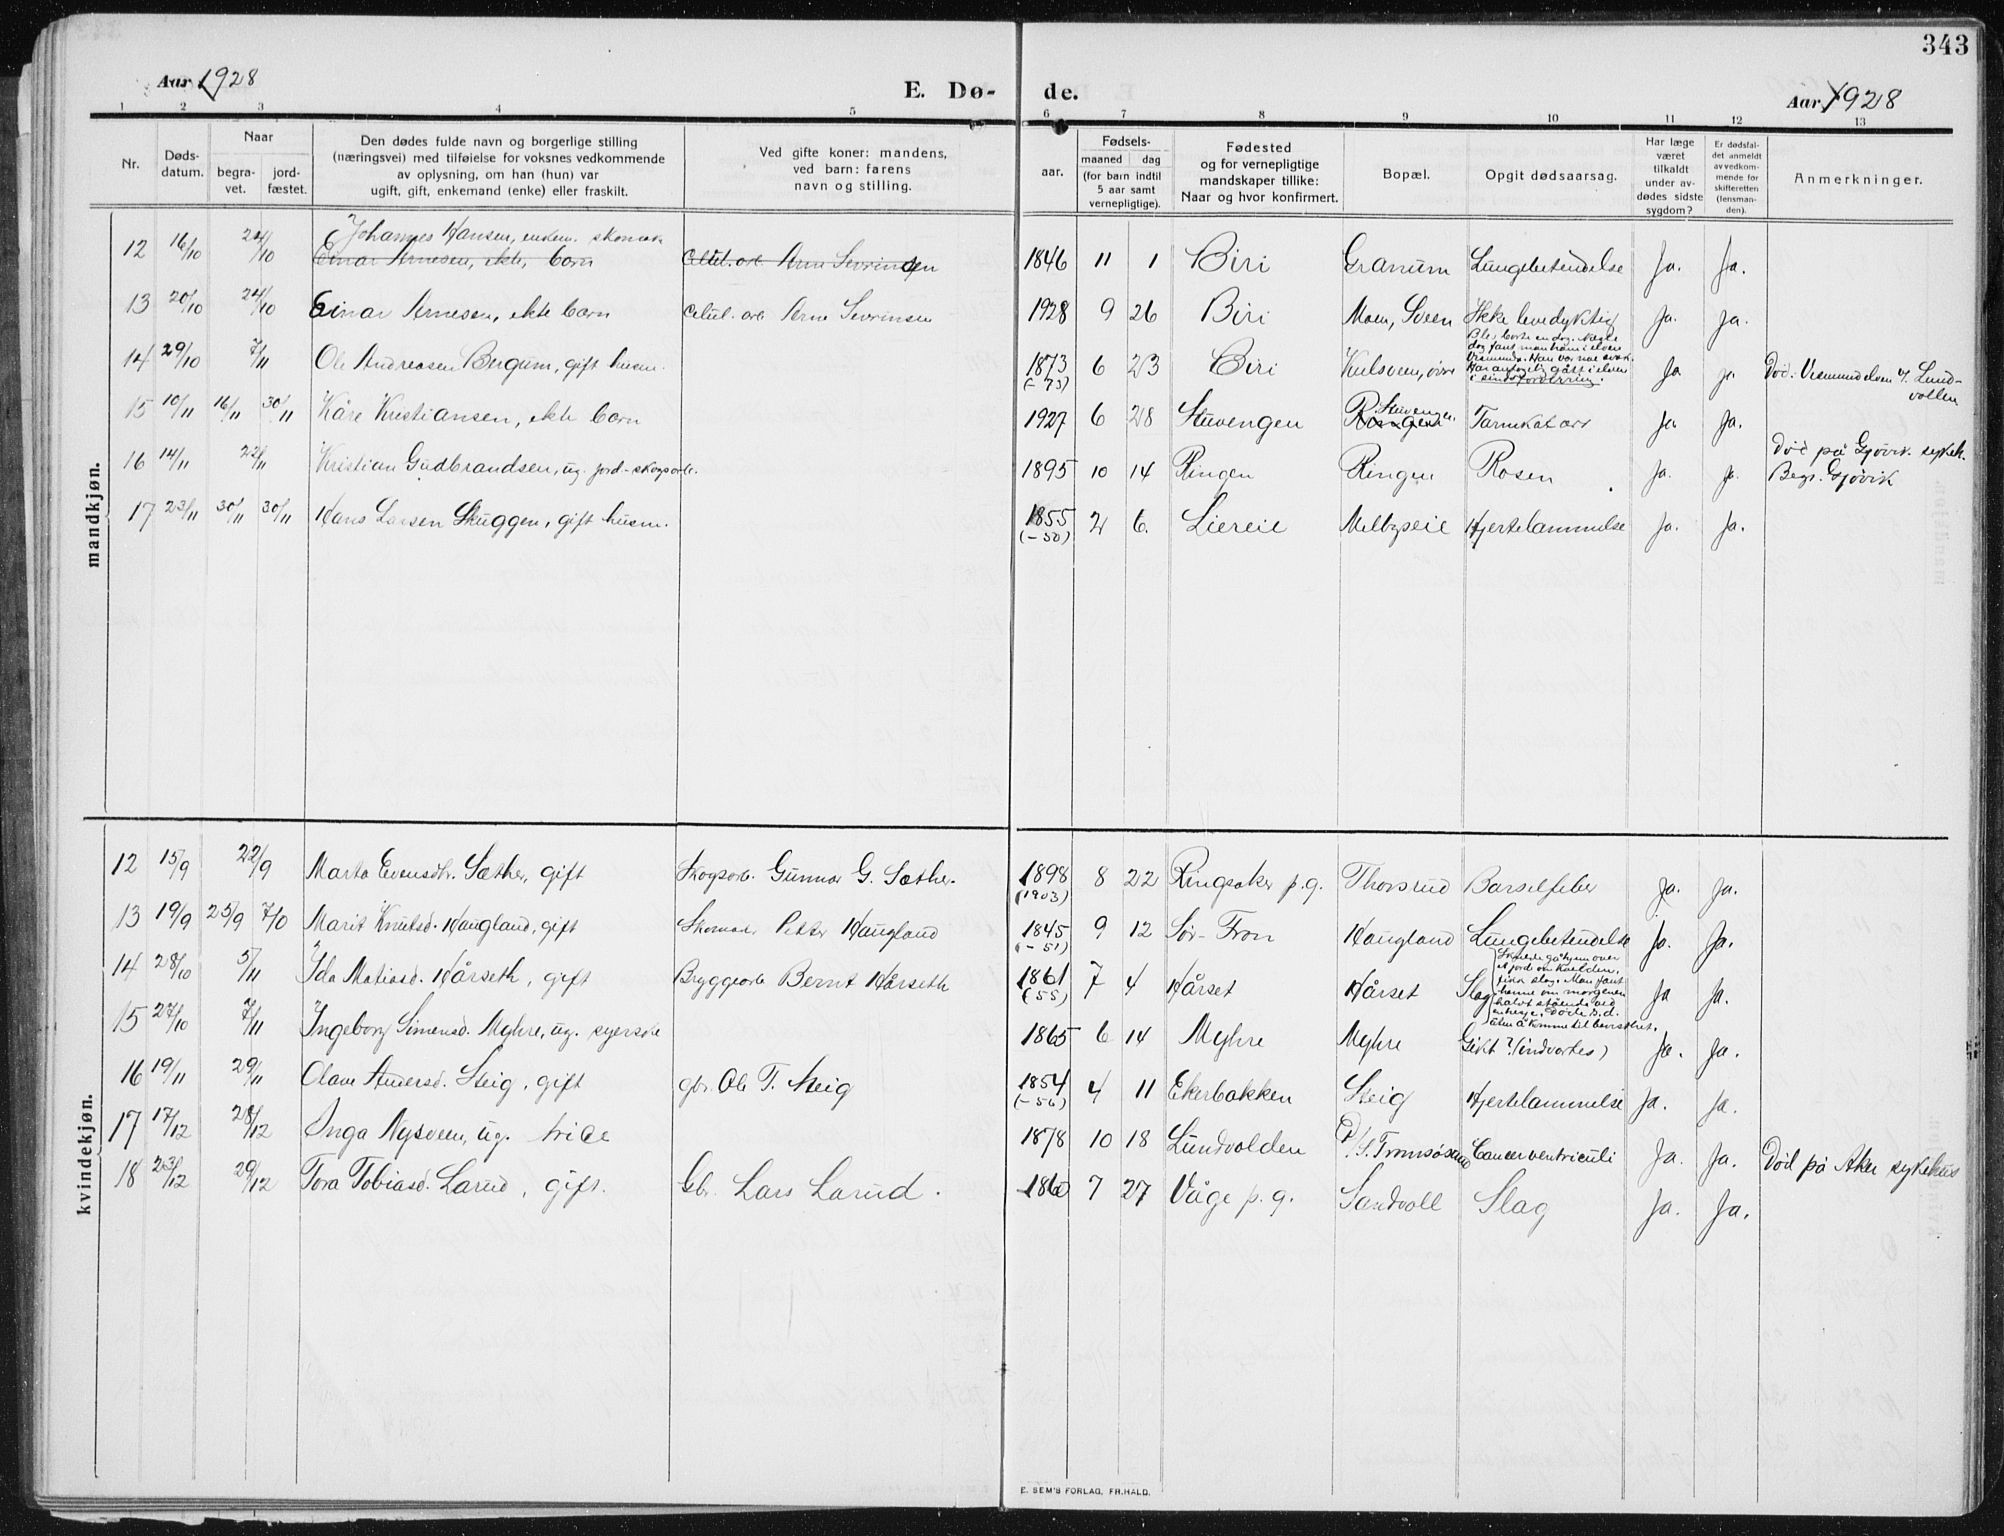 343
Aar 1928
E. Dø-
de.
Aar 1928
1 2 3 4 5 6 7 8 9 10 11 12 13
Nr.
Døds-
datum.
Naar
begra-
vet.
jord-
fæstet.
Den dødes fulde navn og borgerlige stilling
(næringsvei) med tilføielse for voksnes vedkommende
av oplysning, om han (hun) var
ugift, gift, enkemand (enke) eller fraskilt.
Ved gifte koner: mandens,
ved barn: farens
navn og stilling.
Fødsels-
aar.
maaned dag
(for barn indtil
5 aar samt
vernepligtige).
Fødested
og for vernepligtige
mandskaper tillike:
Naar og hvor konfirmert.
Bopæl.
Opgit dødsaarsag.
Har læge
været
tilkaldt
under av-
dødes sidste
sygdom?
Er dødsfal-
det anmeldt
av vedkom-
mende før
skifteretten
(lensman-
den).
Anmerkninger.
mandkjøn.
Johannes Hansen, enkem.
12 16/10 24/10 Einar Arnesen, ekte, barn Arne Sevrinsen 1846 11 1 Biri Granum Lungebetendelse Ja. Ja.
13 20/10 24/10 Einar Arnesen, ekte barn Arne Sevrinsen 1928 9 26 Biri Moen, Sveen Ikke levedyktig Ja. Ja.
14 29/10 7/11 Ole Andreasen Bergum, gift husm. 1873 6 23 Biri Kulsveen, øvre Ja ja. Død: Vismundelven v/ Lund-
vollen
(-73)
15 10/11 16/11 30/11 Kåre Kristiansen, ekte barn 1927 6 28 Stuvengen Stuvengen Tarmkatarr Ja Ja.
16 14/11 22/11 Kristian Gudbrandsen, ug. jord-skogsarb. 1895 10 14 Ringen Ringen Rosen Ja. Ja. Død på Gjøvik sykeh.
Begr. Gjøvik
17 23/11 30/11 30/11 Hans Larsen Skuggen, gift husm. 1855 2 6. Liereie Melbyseie Hjertelammelse Ja. Ja.
(-50)
kvindekjøn.
12 15/9 22/9 Marta Evensdtr. Sæther, gift Skogsarb. Gunnar G. Sæther. 1898 8 22 Ringsaker p.g. Thorsrud Barselfeber Ja. Ja.
(1903)
13 19/9 25/9 7/10 Marit Knutsd. Haugland, gift Skomak. Petter Haugland 1845 9 12 Sør-Fron Haugland Lungebetendelse Ja. Ja.
(-51)
14 28/10 5/11 Ida Matiasd. Hårseth, gift Bryggearb Bernt Hårseth 1861 7 4 Hårset Hårset Slag Skulde gå hjem over
et jorde om kvelden,
fikk slag. Man fant
henne om morgenen
halvt stående ved
en hesje. Døde s.d.
uten å komme til bevissthet. Ja Ja.
(-55)
15 27/10 7/11 Ingeborg Simensd. Myhre, ug. syerske 1865 6 14 Myhre Myhre Gikt? (indvortes) Ja. Ja.
16 19/11 29/11 Olave Andersd. Steig, gift gbr. Ole T. Steig 1854 4 11 Ekerbakken Steig Hjertelammelse Ja. Ja.
(-56)
17 17/12 28/12 Inga Nysveen, ug. 1878 10 18 Lundvolden Cancer ventriculi Ja. Ja. Død på Aker sykehus
18 23/12 29/12 Tora Tobiasd. Larud, gift. Gbr. Lars Larud. 1860 7 27 Våge p.g. Sandvoll Slag Ja. Ja.
E. SEM'S FORLAG, FR.HALD.